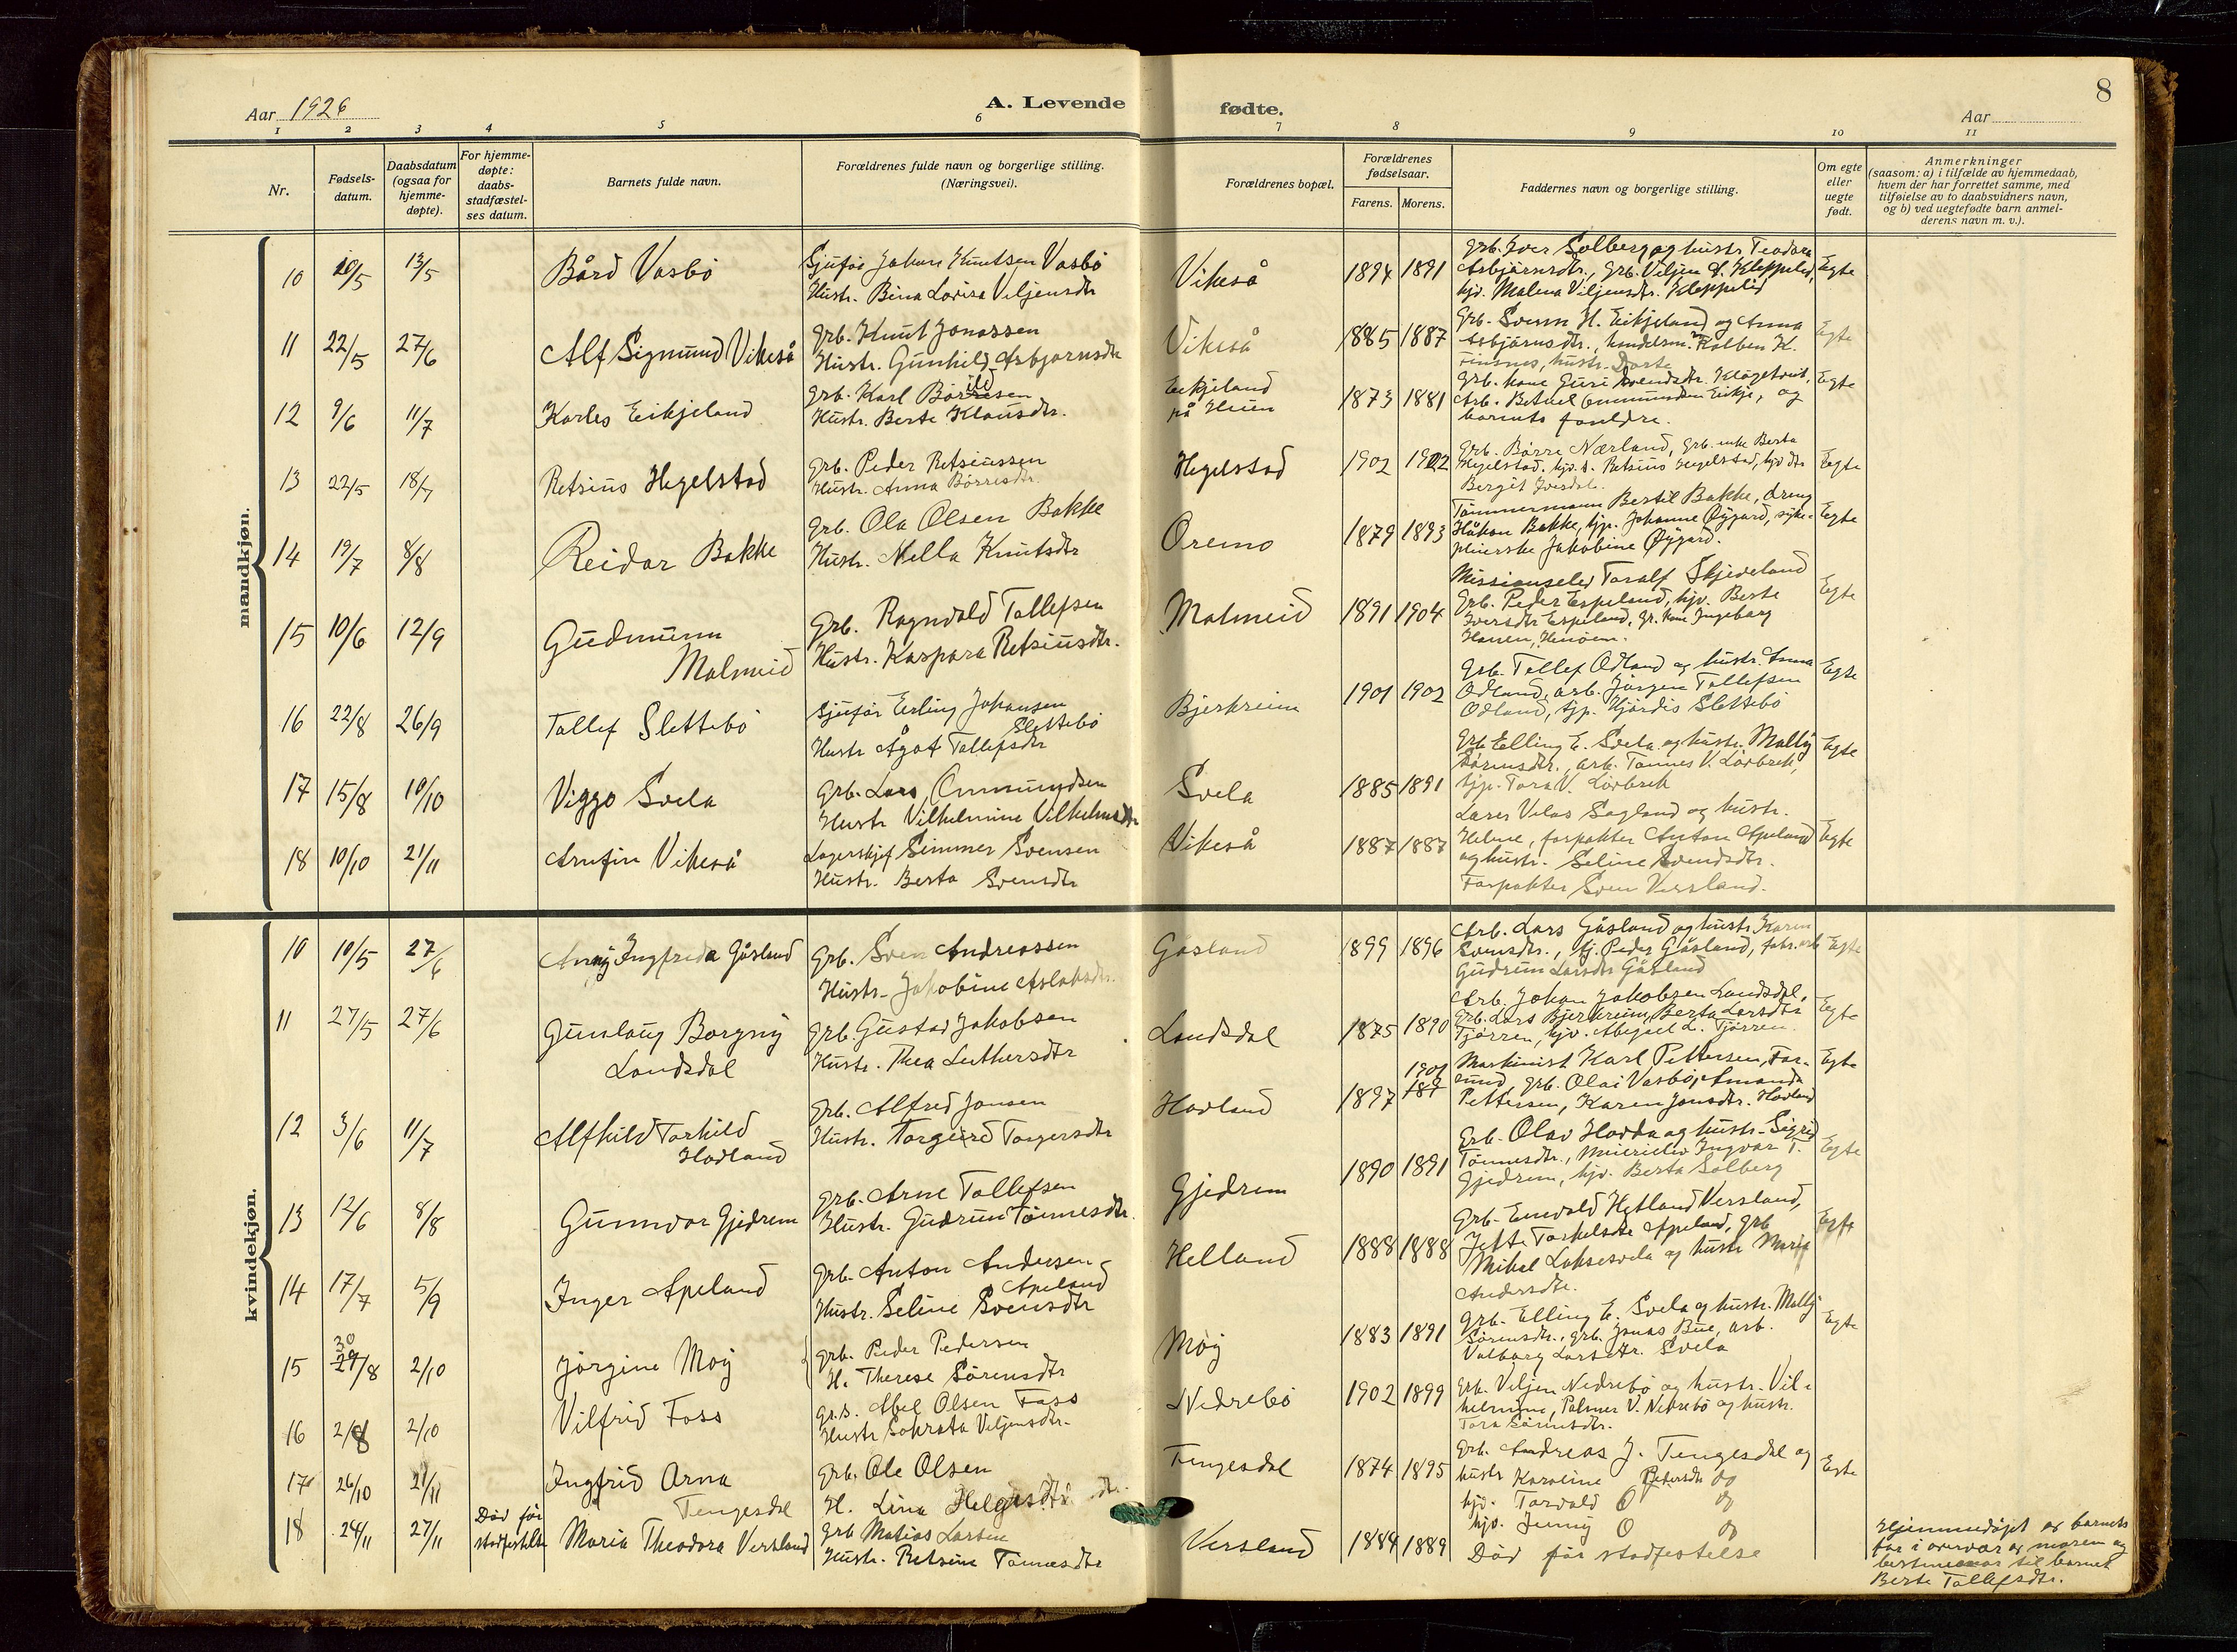 8
Aar 1926
A. Levende
fødte.
Aar
1 2 3 4 5 6 7 8 9 10 11
Nr.
Fødsels-
datum.
Daabsdatum
(ogsaa for
hjemme-
døpte).
For hjemme-
døpte:
daabs-
stadfæstel-
ses datum.
Barnets fulde navn.
Forældrenes fulde navn og borgerlige stilling.
(Næringsvei).
Forældrenes bopæl.
Forældrenes
fødselsaar.
Farens. Morens.
Faddernes navn og borgerlige stilling.
Om egte
eller
uegte
født.
Anmerkninger
(saasom: a) i tilfælde av hjemmedaab,
hvem der har forrettet samme, med
tilføielse av to daabsvidners navn,
og b) ved uegtefødte barn anmel-
derens navn m. v.).
mandkjøn.
10 20/5 13/5 Bård Vasbö
Sjuför Johan Knutsen Vasbö
Hustr. Bina Lovisa Viljensdtr
Vikeså 1894 1891
Grb. Iver Solberg og hustr. Teodora
Asbjörnsdtr., Grb. Viljen S. Kleppelid,
hjv. Malena Viljensdtr. Kleppelid
Egte
11 22/5 27/6 Alf Sigmund Vikeså
Grb. Knut Jonassen
Hustr. Gunhild Asbjornsdtr
Vikeså 1885 1887
Grb. Svenn H. Eikjeland og Anna
Asbjörnsdtr., handelsm. Kolben H.
Finsnes, hustr. Dorte
Egte
12 9/6 11/7 Karles Eikjeland
Grb. Karl Börresen
Hustr. Berte Klausdtr.
Eikjeland
på Huen
1873 1881
Grb. kone Guri Svendsdtr. Klögetvet,
Arb. Betuel Ommundsen Eikje, og
barnets foreldre.
Egte
13 22/5 18/7 Retsius Hegelstad
Grb. Peder Retsiussen
Hustr. Anna Börresdtr.
Hegelstad 1902 1902
Grb. Börre Nærland, Grb. enke Berta
Hegelstad, hjv. s. Retsius Hegelstad, hjv dtr
Bergit Iversdal.
Egte
14 19/7 8/8 Reidar Bakke
Grb. Ola Olsen Bakke
Hustr. Nella Knutsdtr
Oremo 1879 1893
Tömmermann Bertil Bakke, dreng
Håkon Bakke, tjp. Johanne Øygard, syke-
pleierske Jakobine Øygard.
Egte
15 10/6 12/9 Gudmunn
Malmeid
Grb. Ragnvald Tollefsen
Hustr. Kaspara Retsiusdtr.
Malmeid 1891 1904
Missionselev Toralf Skjeveland
Grb. Peder Espeland, hjv. Berte
Iversdtr Espeland, Gr. kone Ingeborg
Hansen, Henöen.
Egte
16 22/8 26/9 Tollef Slettebö
Sjuför Erling Johansen
Slettebö
Hustr Ågot Tollefsdtr
Bjerkreim 1901 1902
Grb. Tollef Odland og hustr. Anna
Odland, arb. Jörgen Tollefsen
Odland, tjp. Hjördis Slettebö
Egte
17 15/8 10/10 Viggo Svela
Grb. Lars Ommundsen
Hustr Vilhelmine Vilhelmsdtr
Svela 1885 1891
Grb Elling E. Svela og hustr. Mally
Sörensdtr., arb. Tönnes V. Lövbrek,
tjp. Tora V. Lövbrek
Egte
18 10/10 21/11 Arnfin Vikeså
Lagerskjef Simmer Svensen
Hustr. Berta Svensdtr
Vikeså 1887 1887
Lærer Vilas Sagland og hustr.
Helene, forpakter Anton Apeland
og hustr. Seline Svendsdtr.
Forpakter Sven Versland.
Egte
kvindekjøn.
10 10/5 27/6 Anny Ingfrida Gåsland
Grb. Sven Andreassen
Hustr. Jakobine Aslaksdtr.
Gåsland 1899 1896
Arb. Lars Gåsland og hustr. Karen
Svensdtr., tj. Peder Gåsland, fabr. arb
Gudrun Larsdtr Gåsland
Egte
11 27/5 27/6 Gunlaug Borgny
Landsdal
Grb. Gustav Jakobsen
Hustr. Thea Luthersdtr
Landsdal 1875 1890
Arb. Johan Jakobsen Landsdal,
Grb. Lars Bjerkreim, Berta Larsdtr
Tjörren, hjv. Abigael L. Tjörren.
Egte
12 3/6 11/7 Alfhild Torhild
Hovland
Grb. Alfred Jonsen
Hustr. Torgierd Torgersdtr
Hovland 1897 1901 187
Maskinist Karl Pettersen, Far-
sund, grb. Olai Vasbö, Amanda
Pettersen, Karen Jonsdtr. Hovland
Egte
13 12/6 8/8 Gunnvor Gjedrem
Grb. Arne Tollefsen
Hustr. Gudrun Tönnesdtr.
Gjedrem 1890 1891
Grb. Olav Hovda og hustr. Sigrid
Tönnesdtr., Meierielev Ingvar T.
Gjedrem, hjv. Berta Solberg
Egte
14 17/7 5/9 Inger Apeland
Grb. Anton Andersen
Apeland
Hustr. Seline Svensdtr
Helland 1888 1888
Grb. Enevald Hetland Versland,
Jette Torkelsdtr Apeland, grb
Mikal Laksesvela og hustr Maria
Andersdtr.
Egte
15 30 29/8 2/10 Jörgine Moy
Grb. Peder Pedersen
H. Therese Sörensdtr
Moy 1883 1891
Grb. Elling E. Svela og hustr. Mally
Sörensdtr., grb. Jonas Bue, arb.
Valborg Larsdtr. Svela
Egte
16 2/8 2/10 Vilfrid Foss
Gr.s. Abel Olsen Foss
Hustr Sokrata Viljensdtr.
Nedrebö 1902 1899
Grb. Viljen Nedrebö og hustr. Vil-
helmine, Palmer V. Nedrebö og hustr.
Tora Sörensdtr.
17 26/10 21/11 Ingfrid Arna
Tengesdal
Grb. Ole Olsen
H. Lina Helgesdtr
Tengesdal 1874 1895
Grb. Andreas J. Tengesdal og
hustr Karoline Pedersdtr og
hjv. Torvald O og
hjv. Jenny O og
Egte
18 24/11 27/11
Död för
stadfestelse
Maria Theodora Versland
Grb Matias Larsen
Hustr. Retsine Tönnesdtr
Versland 1884 1889
Död för stadfestelse
Hjemmedöpt av barnets
far i overvær av moren og
bestemor til barnet
Berte Tollefsdtr.